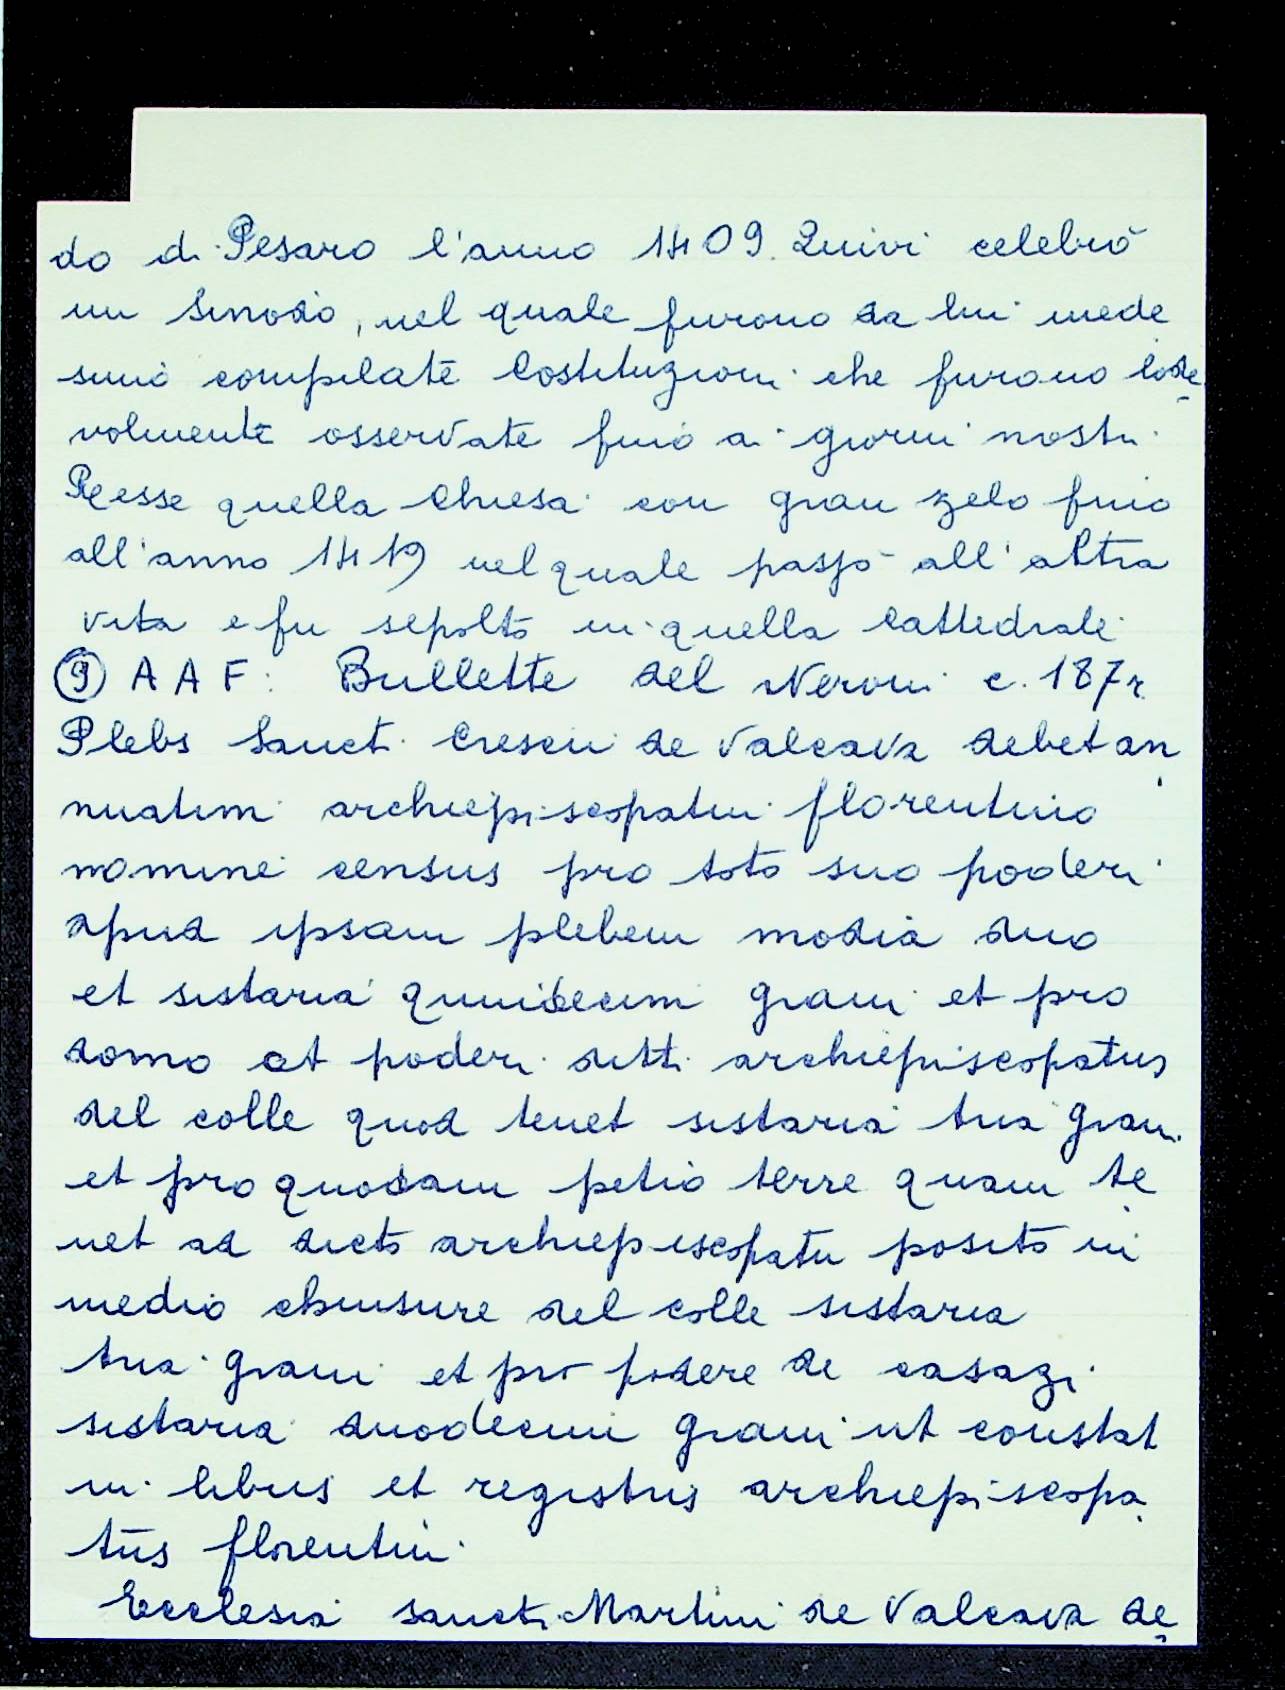 do di Pesaro l'anno 1409. Quivi celebrò
un Sinodo, nel quale furono da lui mede
simo compilate Costituzioni che furono lode
volmente osservate fino ai giorni nostri.
Resse quella Chiesa con gran zelo fino
all'anno 1419 nel quale passò all'altra
vita e fu sepolto in quella Cattedrale
⑨ A A F: Bullette del Neroni c. 187r
Plebs Sancti Cresci de Valcava debet an
nuatim archiepiscopatui florentino
nomine census pro toto suo poderi
apud ipsam plebem modia duo
et sistaria quindecim grani et pro
domo et poderi ditti archiepiscopatus
del colle quod tenet sistaria tria grani
et pro quodam petio terre quam te
net ad dicto archiepiscopatu posito in
medio chiusure del colle sistaria
tria grani et pro podere de casazi
sistaria duodecim grani ut constat
in libris et registris archiepiscopa
tus florentini.
Ecclesia sancti Martini de Valcava de